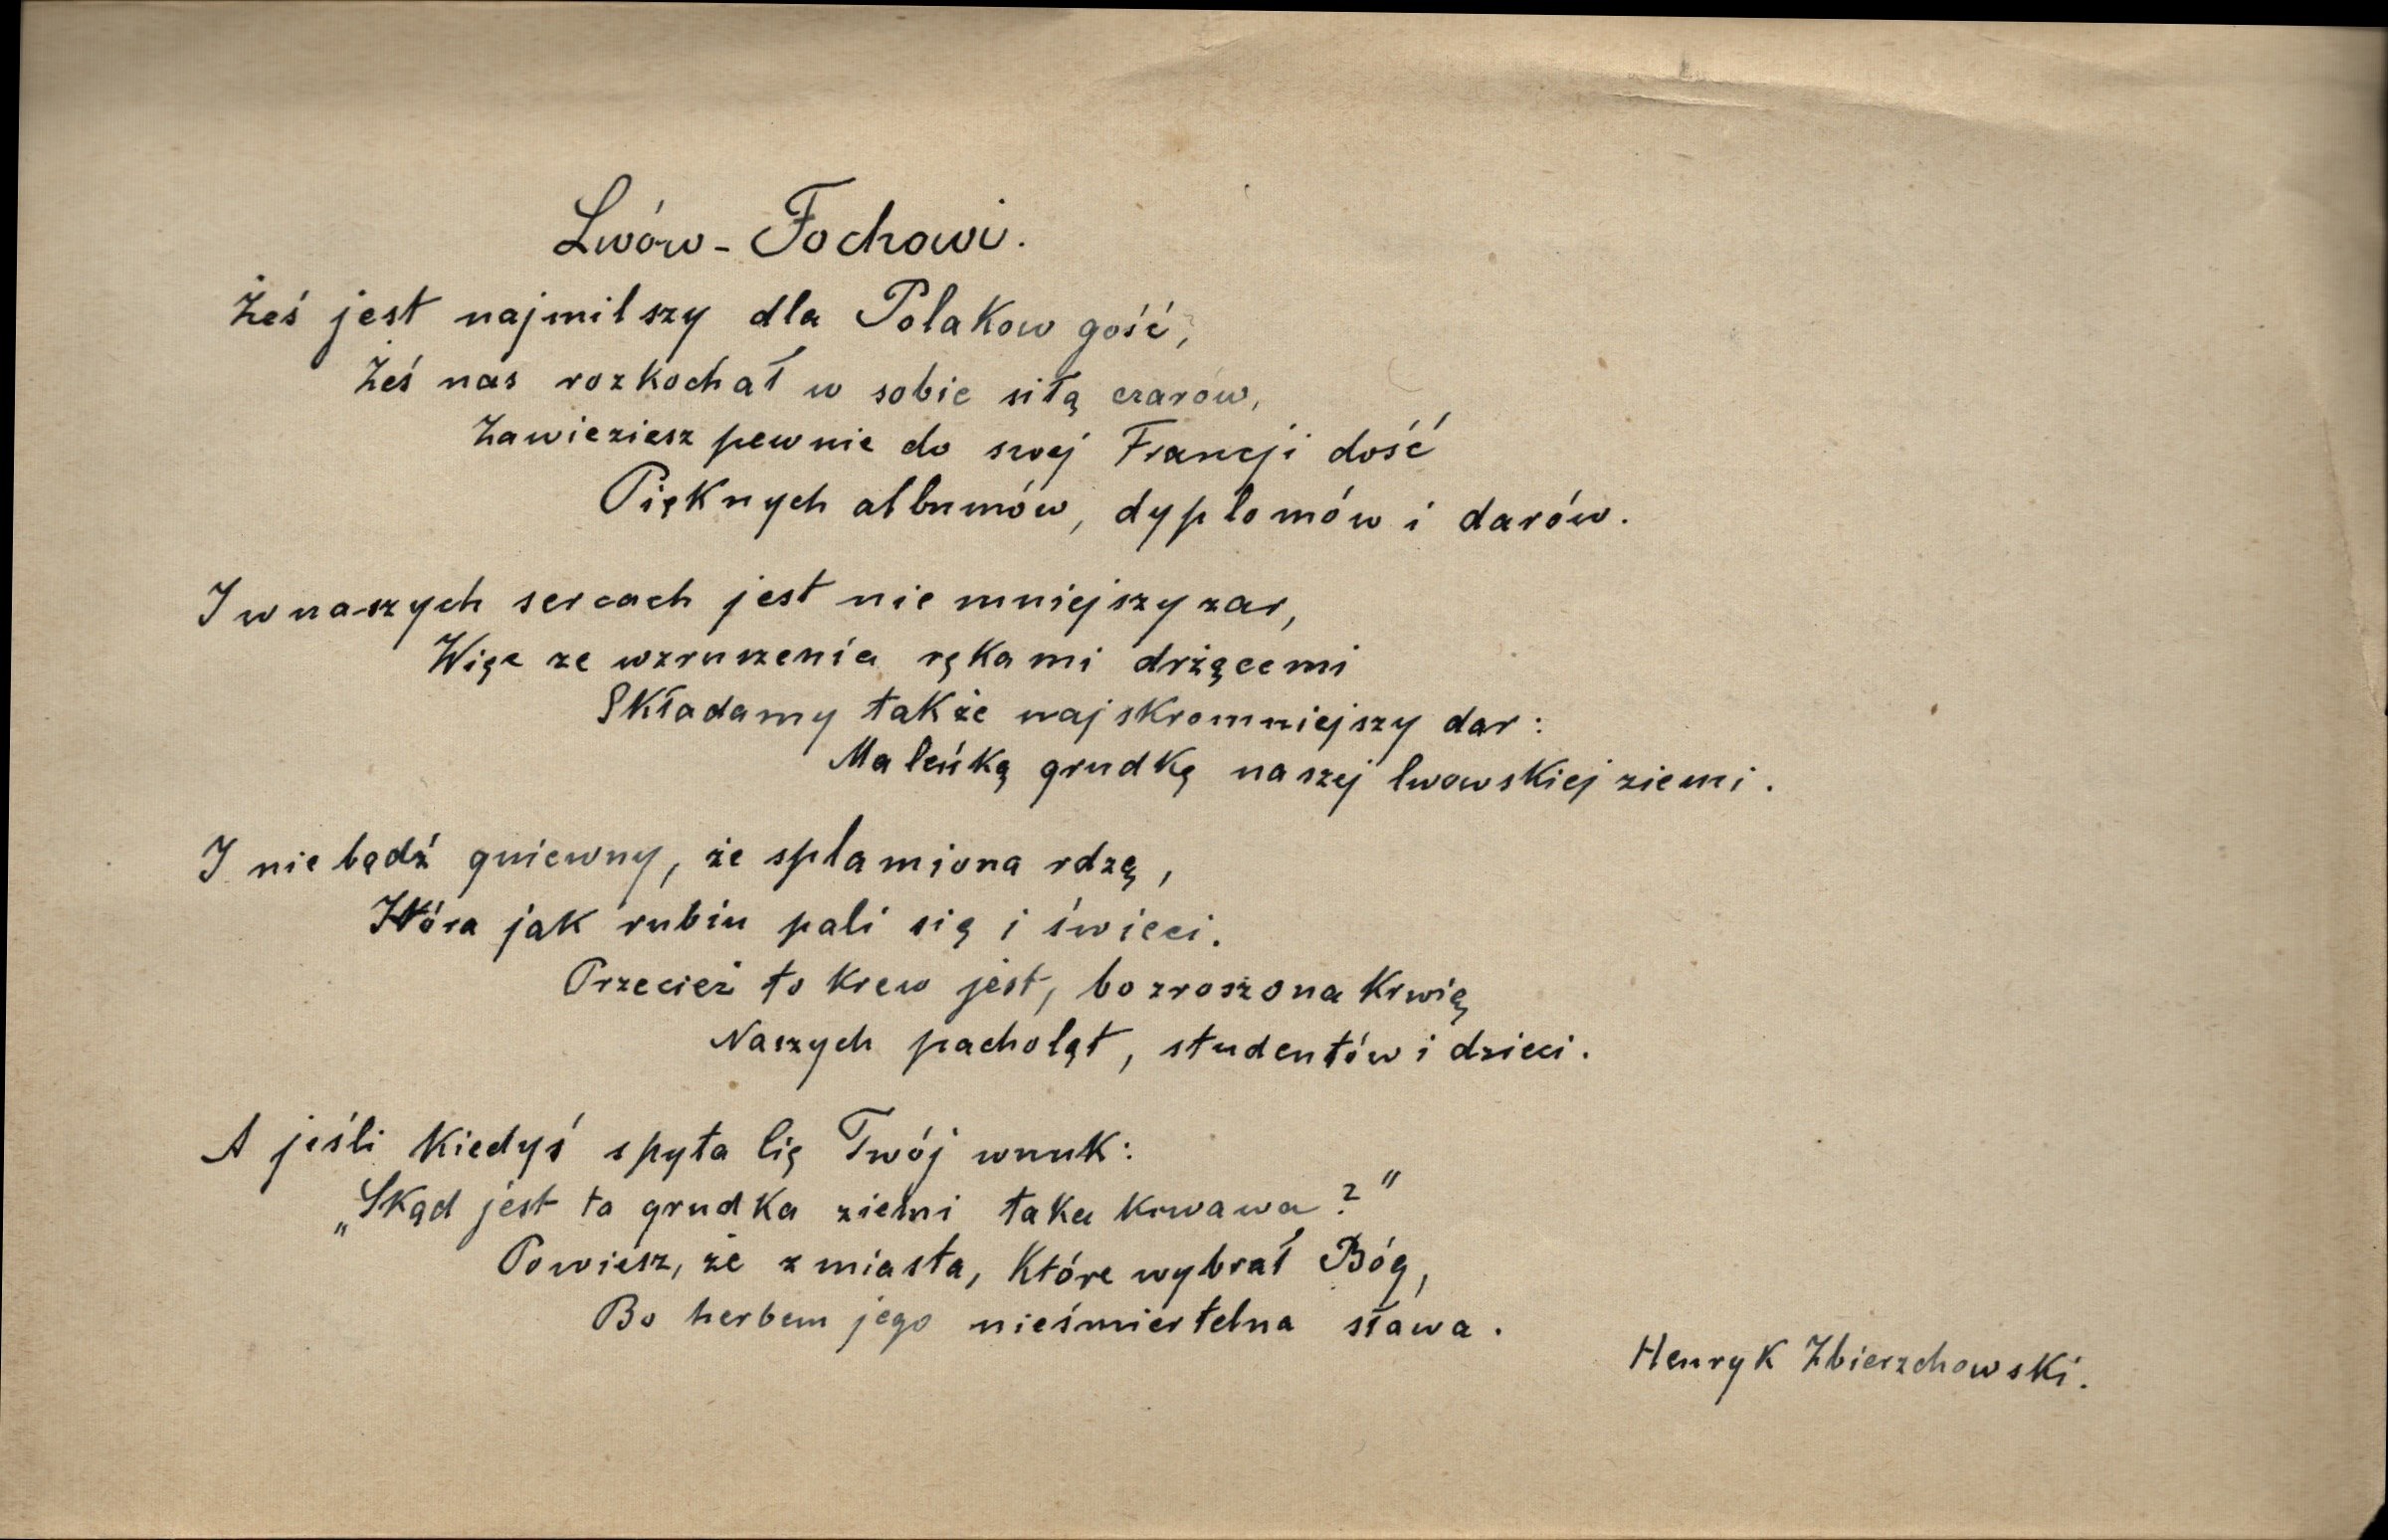 Lwów - Fochowi.
Żeś jest najmilszy dla Polakow gość,
Żeś nas rozkochał w sobie siłą czarów,
Zawieziesz pewnie do swej Francji dość
Pięknych albumów, dyplomów i darów.
I w naszych sercach jest nie mniejszy zar,
Więc ze wzruszenia rękami drżącemi
Składamy także najskromniejszy dar:
Maleńką grudkę naszej lwowskiej ziemi.
I nie bądź gniewny, że splamiona rdzą,
Która jak rubin pali się i świeci.
Przecież to krew jest, bo zroszona krwią
Naszych pacholąt, studentów i dzieci.
A jeśli kiedyś spyta Cię Twój wnuk:
„Skąd jest ta grudka ziemi taka krwawa?"
Powiesz, że z miasta, które wybrał Bóg,
Bo herbem jego nieśmiertelna sława.
Henryk Zbierzchowski.